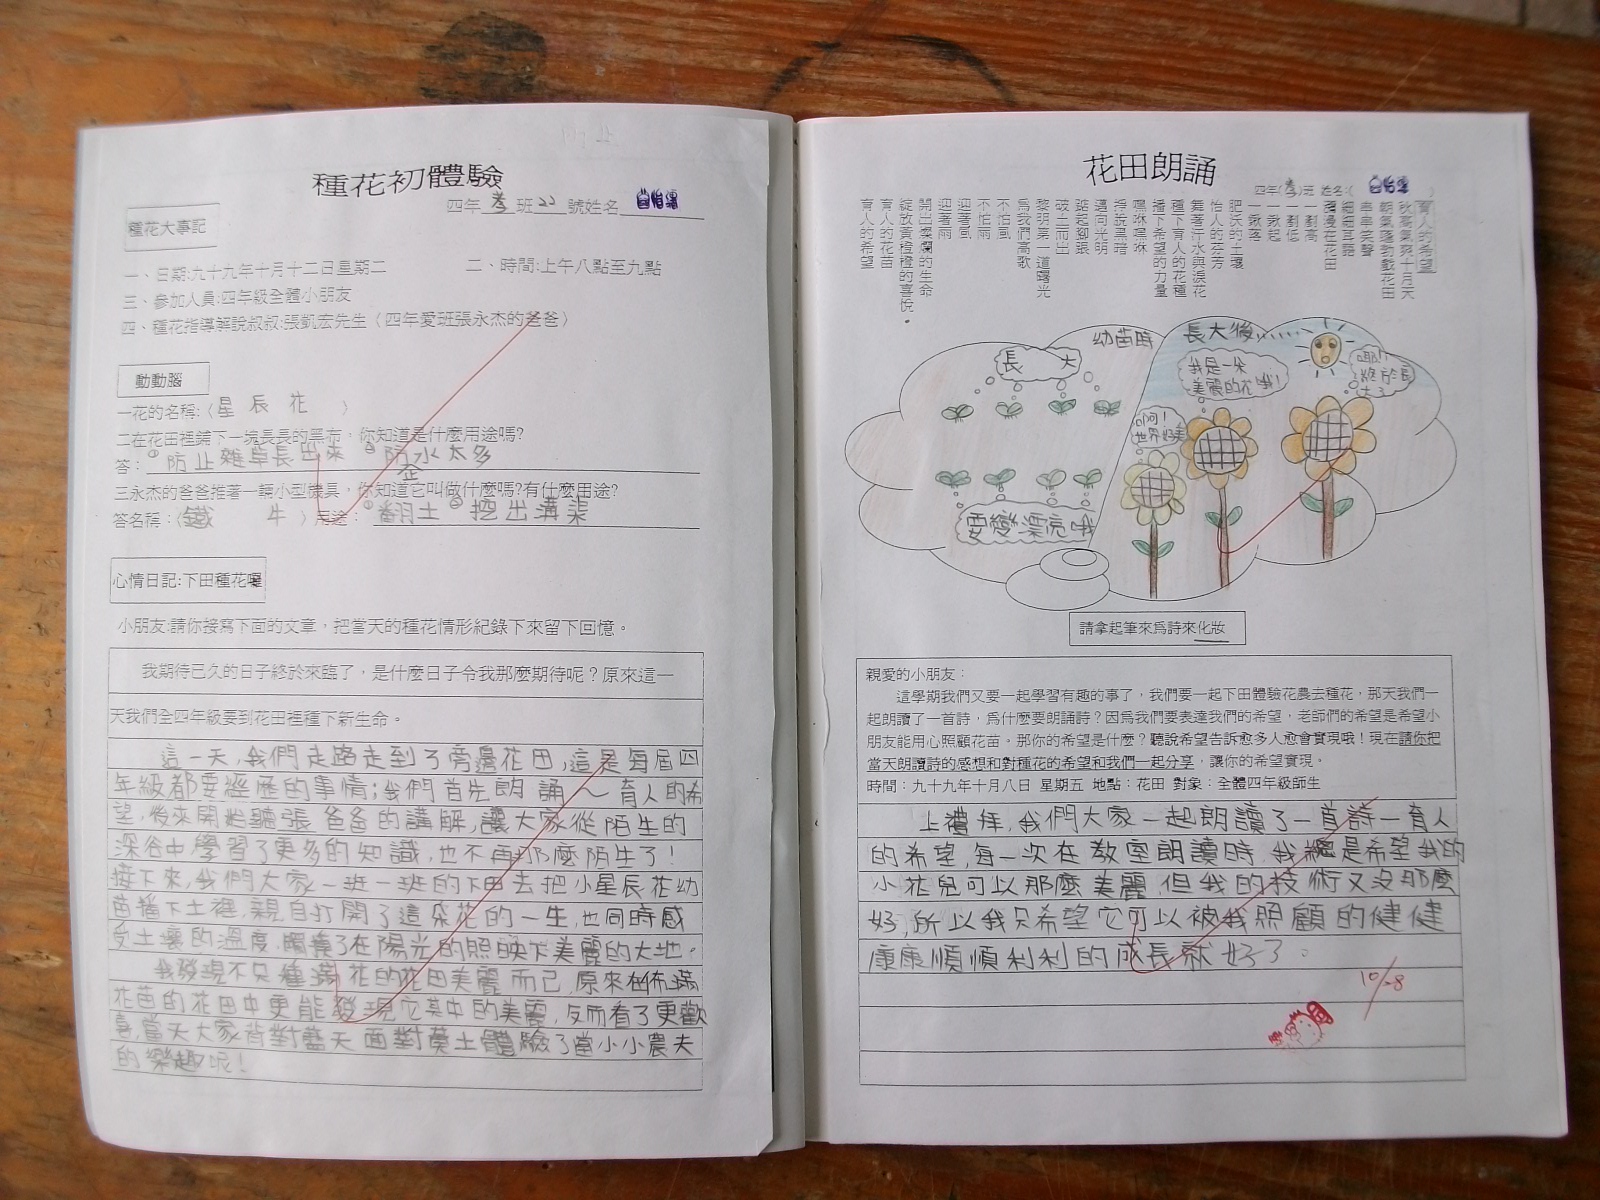 種花初體驗
四年 孝 班 22 號姓名
種花大事記
一、日期:九十九年十月十二日星期二 二、時間:上午八點至九點
三、參加人員:四年級全體小朋友
四、種花指導解說叔叔:張凱宏先生〈四年愛班張永杰的爸爸〉
動動腦
一花的名稱:〈星辰花〉
二在花田裡鋪下一塊長長的黑布，你知道是什麼用途嗎?
答：①防止雜草長出來 ②防水太多
三永杰的爸爸推著一輛小型機具，你知道它叫做什麼嗎?有什麼用途?
答名稱：〈鐵牛〉用途：①翻土 ②挖出溝渠
心情日記:下田種花囉
小朋友:請你接寫下面的文章，把當天的種花情形紀錄下來留下回憶。
我期待已久的日子終於來臨了，是什麼日子令我那麼期待呢？原來這一
天我們全四年級要到花田裡種下新生命。
這一天,我們走路走到了旁邊花田,這是每屆四
年級都要經歷的事情;我們首先朗誦～育人的希
望,後來開始聽張爸爸的講解,讓大家從陌生的
深谷中學習了更多的知識,也不再那麼陌生了!
接下來,我們大家一班一班的下田去把小星辰花幼
苗播下土裡,親自打開了這朵花的一生,也同時感
受土壤的溫度,觸摸了在陽光的照映下美麗的大地。
我發現不只種滿花的花田美麗而已,原來在佈滿
花苗的花田中更能發現它其中的美麗,反而看了更歡
喜,當天大家背對藍天面對黃土體驗了當小小農夫
的樂趣呢!
花田朗誦
四年(孝)班 姓名:( )
育人的希望
秋高氣爽十月天
朝氣蓬勃戲花田
串串笑聲
細細耳語
瀰漫在花田
一剷高
一剷低
一鍬起
一鍬落
肥沃的土壤
怡人的芬芳
舞著汗水與淚花
種下育人的花種
播下希望的力量
嘿咻嘿咻
掙脫黑暗
邁向光明
踮起腳跟
破土而出
黎明第一道曙光
為我們高歌
不怕雨
不怕風
迎著風
迎著雨
開出燦爛的生命
綻放黃橙橙的喜悅
育人的花苗
育人的希望
幼苗時
長大後……
長大
我是一朵
美麗的花哦!
耶!
終於長
大了
啊!
世界好美
要變漂亮哦
請拿起筆來為詩來化妝
親愛的小朋友：
這學期我們又要一起學習有趣的事了，我們要一起下田體驗花農去種花，那天我們一
起朗讀了一首詩，為什麼要朗誦詩？因為我們要表達我們的希望，老師們的希望是希望小
朋友能用心照顧花苗。那你的希望是什麼？聽說希望告訴愈多人愈會實現哦！現在請你把
當天朗讀詩的感想和對種花的希望和我們一起分享，讓你的希望實現。
時間：九十九年十月八日 星期五 地點：花田 對象：全體四年級師生
上禮拜,我們大家一起朗讀了一首詩－育人
的希望,每一次在教室朗讀時,我總是希望我的
小花兒可以那麼美麗,但我的技術又沒那麼
好,所以我只希望它可以被我照顧的健健
康康順順利利的成長就好了。
10/28